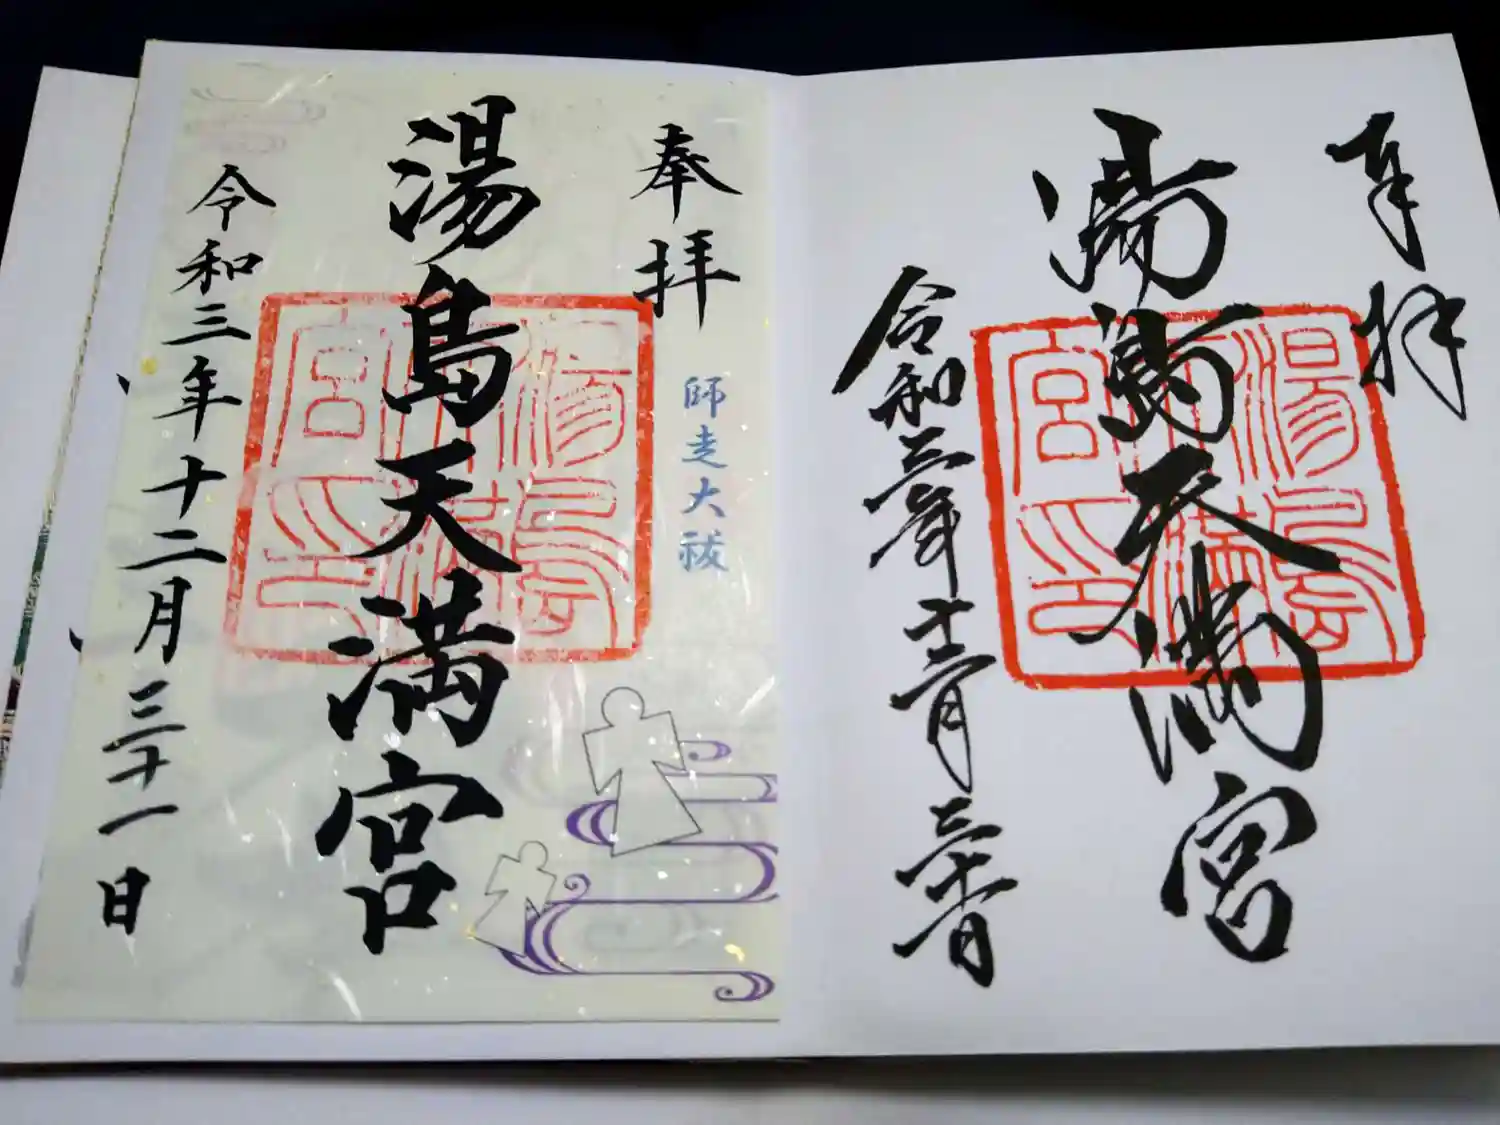 奉拝
湯島天満宮
湯島
天満
宮印
令和三年十二月三十一日
奉拝
師走大祓
湯島天満宮
湯島
天満
宮印
令和三年十二月三十一日